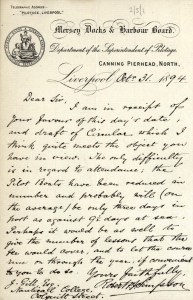 TELEGRAPHIC ADDRESS:
"PILOTAGE, LIVERPOOL."
Mersey Docks & Harbour Board.
Department of the Superintendent of Pilotage.
CANNING PIERHEAD, NORTH.
Liverpool, Octr. 31. 1894.
Dear Sir,
I am in receipt of
your favour of this day's date,
and draft of Circular which I
think quite meets the object you
have in view. The only difficulty
is in regard to attendance; the
Pilot Boats have been reduced in
number and probably will (on
the average) be only three days in
port as against 9½ days at sea.
Perhaps it would be as well to
give the number of lessons that the
would cover, and to let the course
run on through the year, if convenient
to you to do so,
Yours faithfully,
J. Gill Esq.
Nautical College,
Colquitt Street.